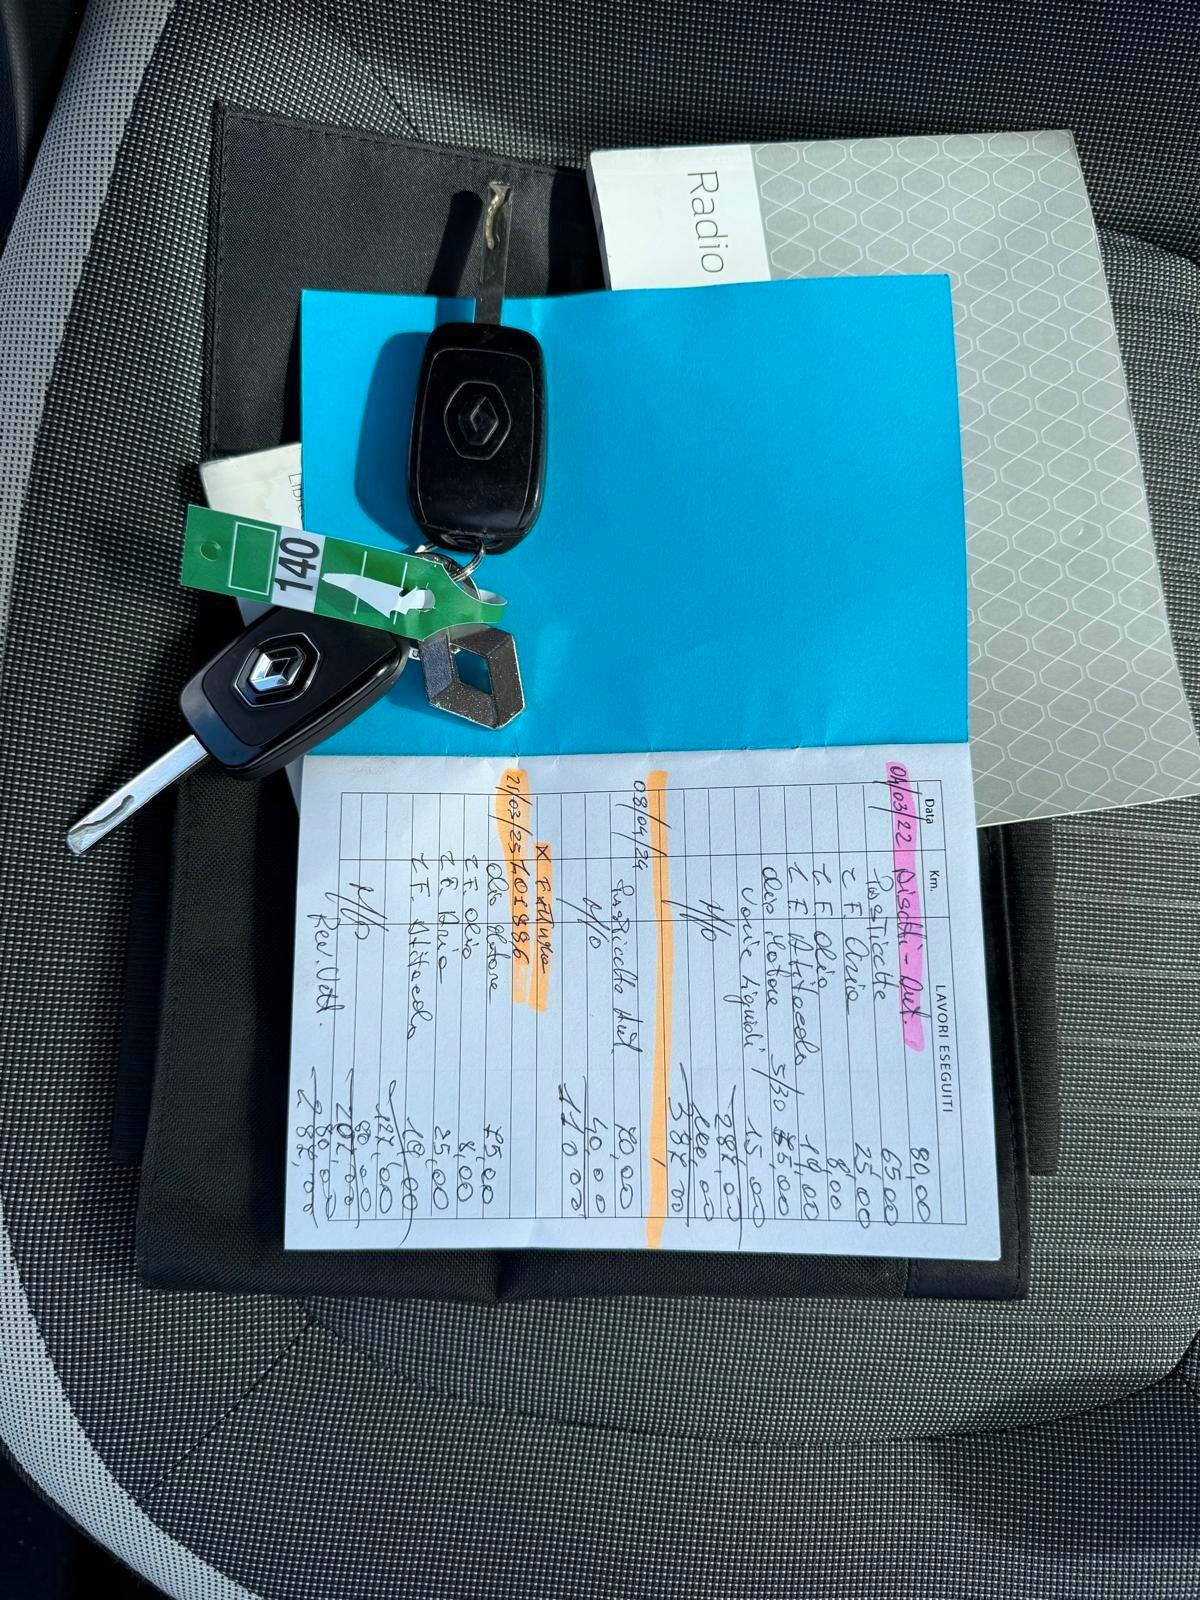 Radio
140
Data Km. LAVORI ESEGUITI
04/03/22 Dischi - Ant. 80,00
Pasticche 65,00
1 F Aria 25,00
1 F olio 8,00
1 F. Abitacolo
Olio Motore 5/30
Varie liquidi 15,00
287,00
M/O 100,00
387,00
08/04/24 Pasticche Ant. 70,00
M/O 40,00
110,00
X Fattura
21/03/25 101886
Olio Motore 75,00
1 F olio 8,00
1 F. Aria 25,00
1 F. Abitacolo 19,00
127,00
M/O 80,00
207,00
Rev. Vett. 80,00